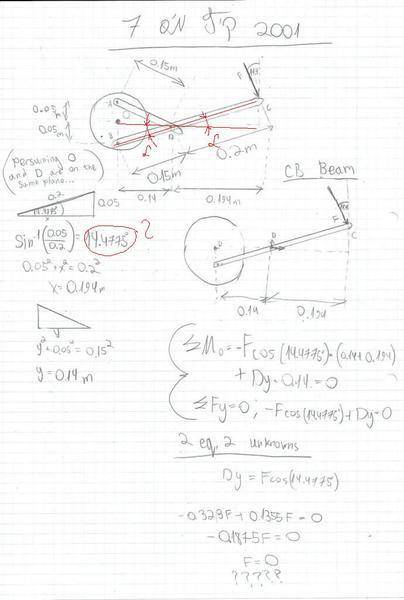 7 תרגיל 2001
0.15m
F
14.4
C
A
O
B
D
0.05m
0.05m
α
α
0.2m
0.15m
0.14
0.194m
(Persuming O
and D are on the
same plane...)
0.2
14.4775°
0.05
x
Sin⁻¹(0.05/0.2) = 14.4775° ?
0.05² + x² = 0.2²
x = 0.194m
y
y² + 0.05² = 0.15²
y = 0.14m
CB Beam
F
C
D
0.14
0.194
ΣM₀ = -Fcos(14.4775°)·(0.14+0.194)
+ Dy·0.14 = 0
ΣFy = 0; -Fcos(14.4775)+Dy=0
2 eq. 2 unknowns
Dy = Fcos(14.4775)
-0.323F + 0.1355F = 0
-0.1875F = 0
F = 0
?????